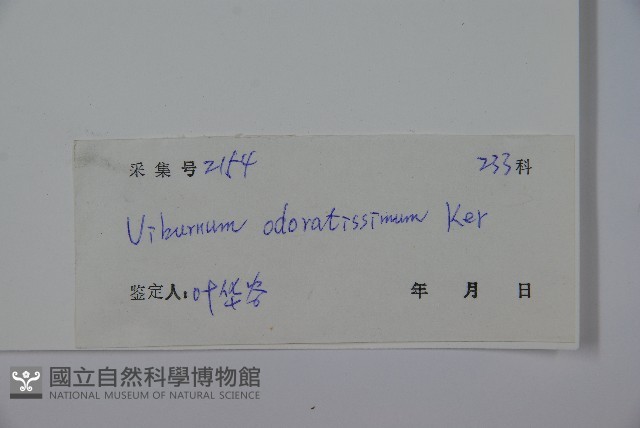 采集号 2154 233科
Viburnum odoratissimum Ker
鉴定人: 叶华谷
年 月 日
國立自然科學博物館
NATIONAL MUSEUM OF NATURAL SCIENCE